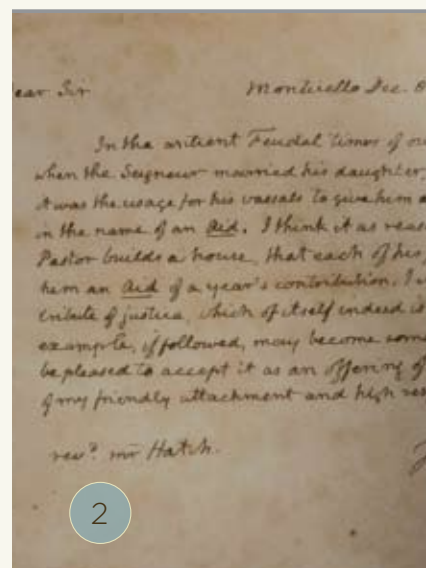 ear Sir Monticello Dec. 8
In the antient Feudal times of ou
when the Seigneur married his daughter,
it was the usage for his vassals to give him a
in the name of an Aid. I think it as reas
Pastor builds a house, that each of his
him an Aid of a year's contribution. I
tribute of justice, which of itself indeed is
example, if followed, may become some
be pleased to accept it as an offering of
of my friendly attachment and high res
revd. mr Hatch.
2